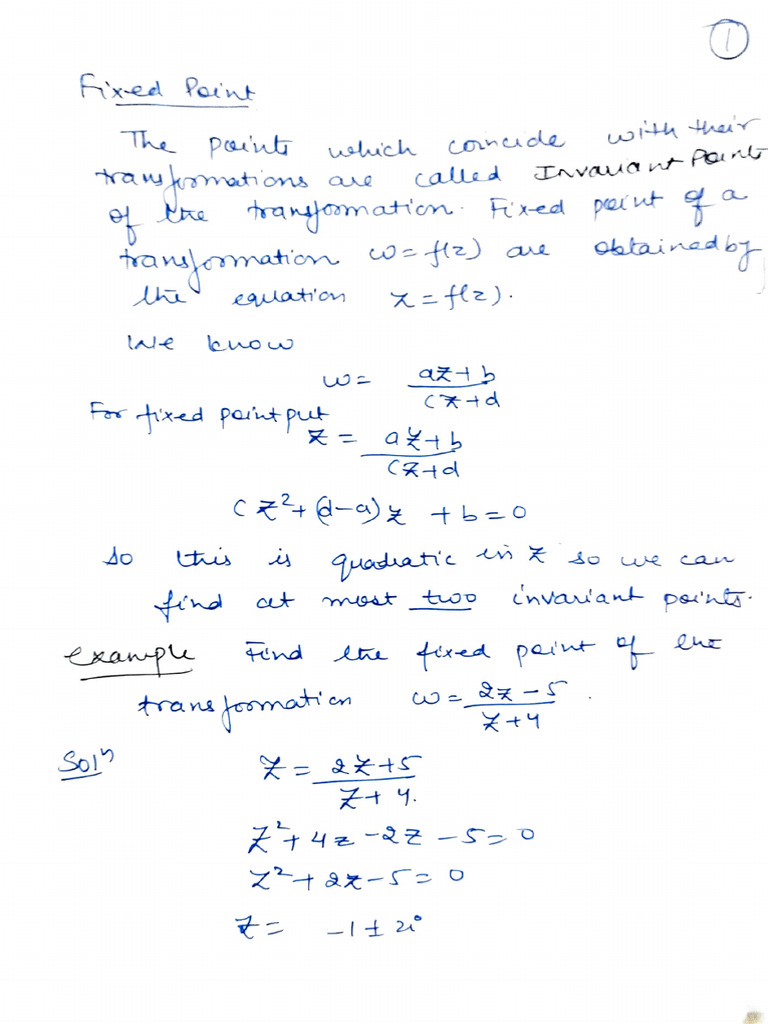 1
Fixed Point
The points which coincide with their
transformations are called Invariant Points
of the transformation. Fixed point of a
transformation w = f(z) are obtained by
the equation z = f(z).
We know
w = (az+b)/(cz+d)
For fixed point put
z = (az+b)/(cz+d)
cz² + (d-a)z + b = 0
So this is quadratic in z so we can
find at most two invariant points.
example Find the fixed point of the
transformation w = (2z-5)/(z+4).
Solⁿ z = (2z+5)/(z+4).
z² + 4z - 2z - 5 = 0
z² + 2z - 5 = 0
z = -1 ± 2i